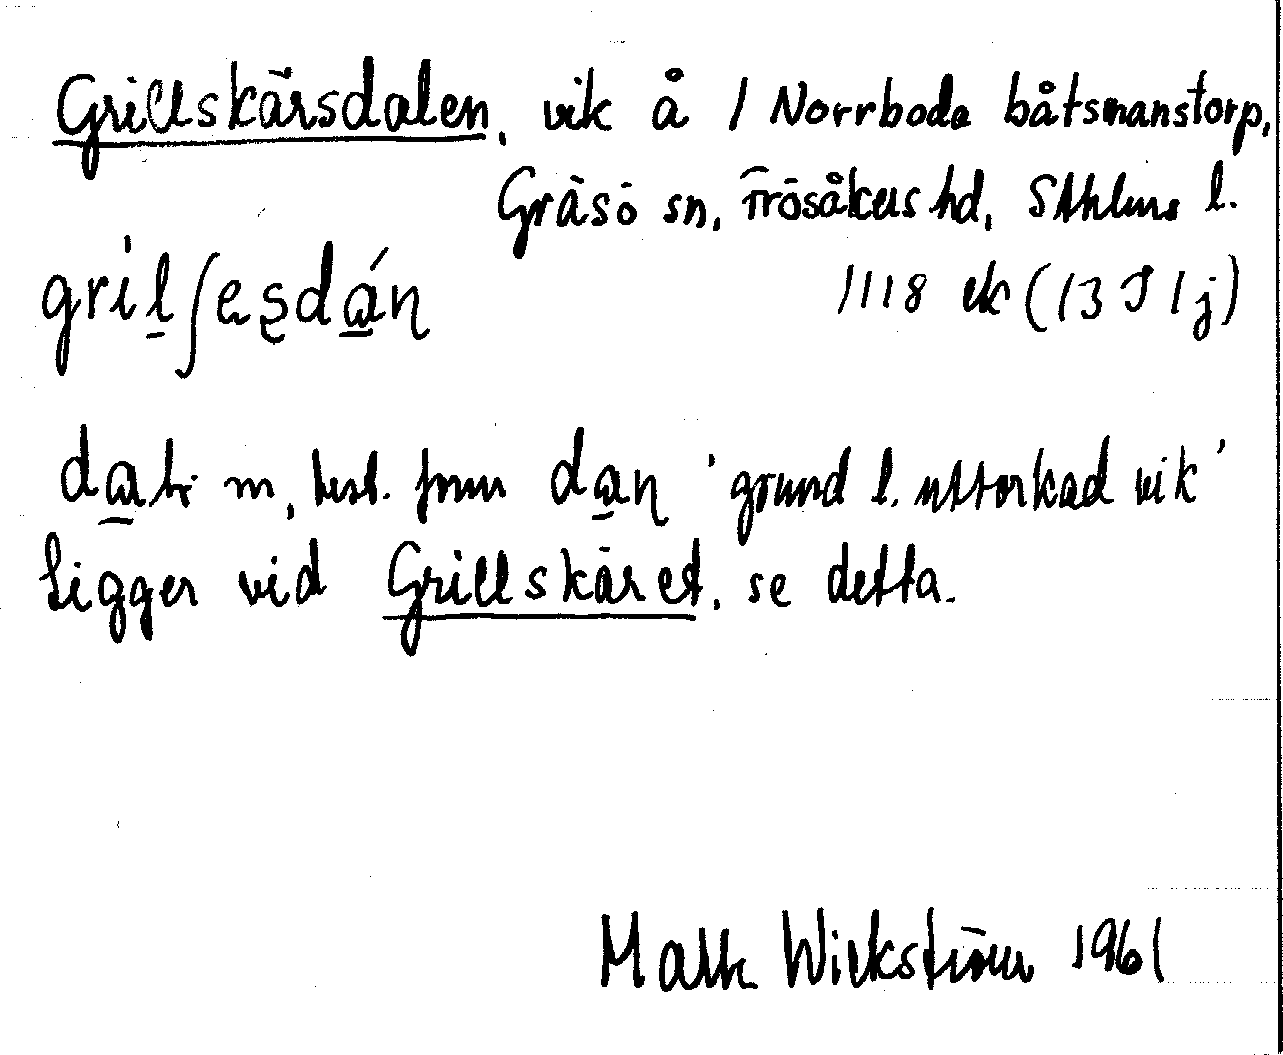 Grillskärsdalen, vik å / Norrboda båtsmanstorp,
Gräsö sn, Frösåkers hd, Sthlms l.
grilʃesdán 1118 ek (13 I 1 j)
m, best. form dan 'grund l. uttorkad vik'
Ligger vid Grillskäret, se detta.
Wickström 1961